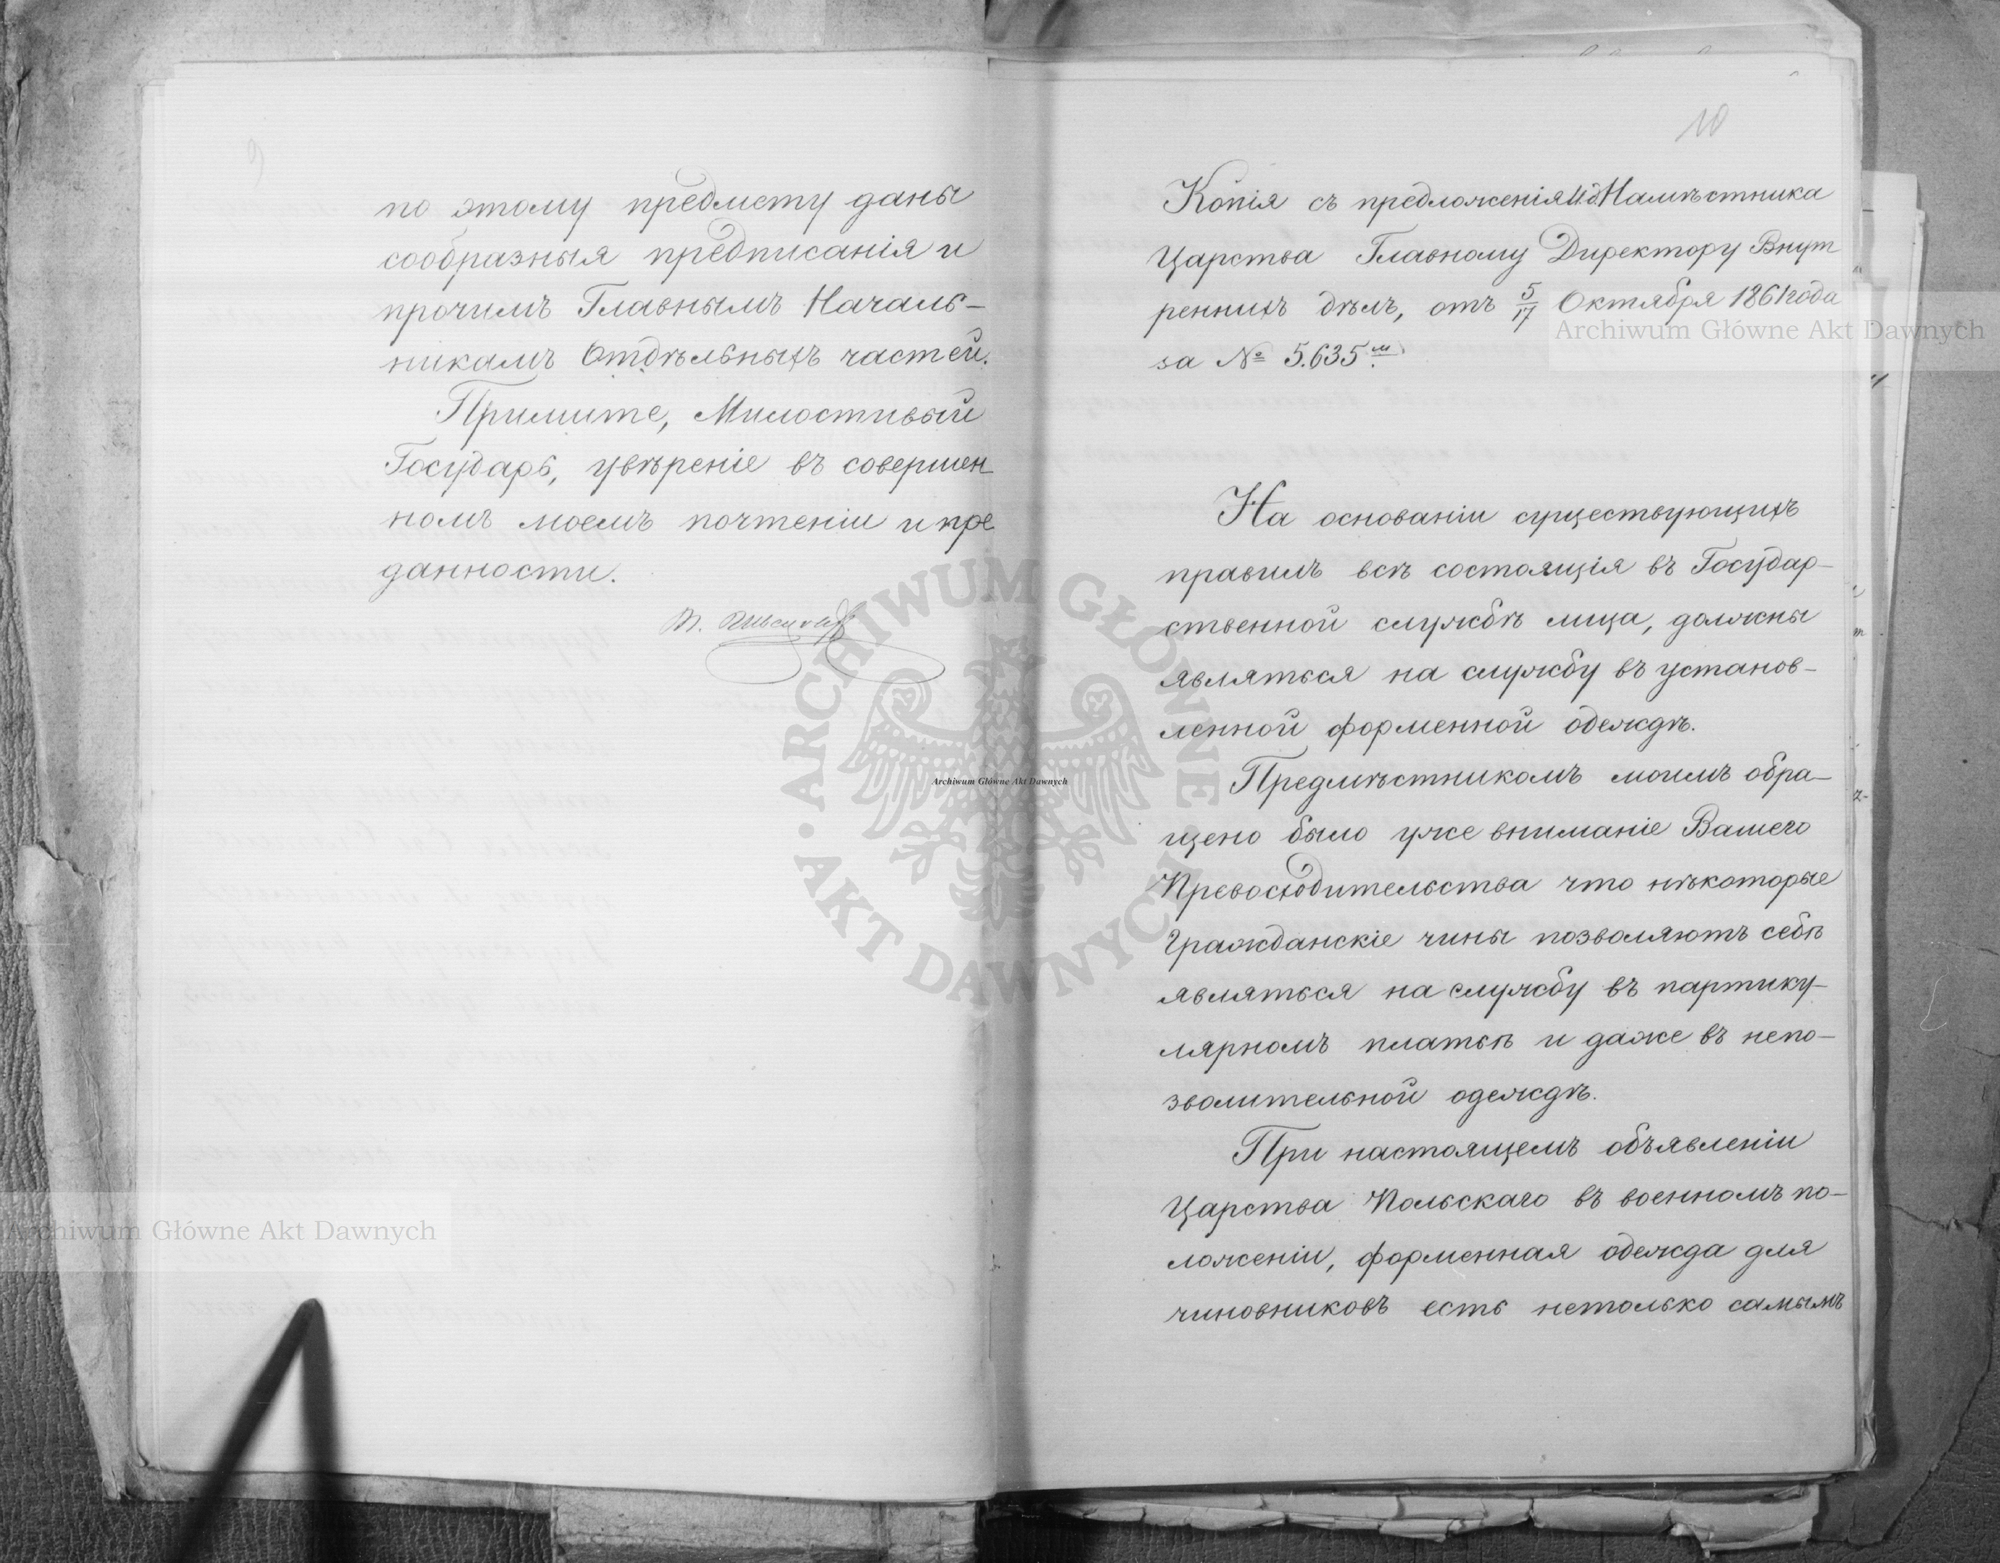 по этому предмету даны
сообразныя предписанія и
прочимъ Главнымъ Началь-
никамъ Отдѣльныхъ частей.
Примите, Милостивый
Государь, увѣреніе въ совершен
номъ моемъ почтеніи и пре
данности.
10
Копія съ предложенія И.д. Намѣстника
Царства Главному Директору Внут
реннихъ дѣлъ, отъ 5/17 Октября 1861 года
за № 5.635м.
На основаніи существующихъ
правилъ всѣ состоящія въ Государ-
ственной службѣ лица, должны
являться на службу въ установ-
ленной форменной одеждѣ.
Предмѣстникомъ моимъ обра-
щено было уже вниманіе Вашего
Превосходительства что нѣкоторые
Гражданскіе чины позволяютъ себѣ
являться на службу въ партику-
лярномъ платьѣ и даже въ непо-
зволительной одеждѣ.
При настоящемъ объявленіи
Царства Польскаго въ военномъ по-
ложеніи, форменная одежда для
чиновниковъ есть нетолько самымъ
Archiwum Główne Akt Dawnych
Archiwum Główne Akt Dawnych
Archiwum Główne Akt Dawnych
ARCHIWUM GŁÓWNE • AKT DAWNYCH •